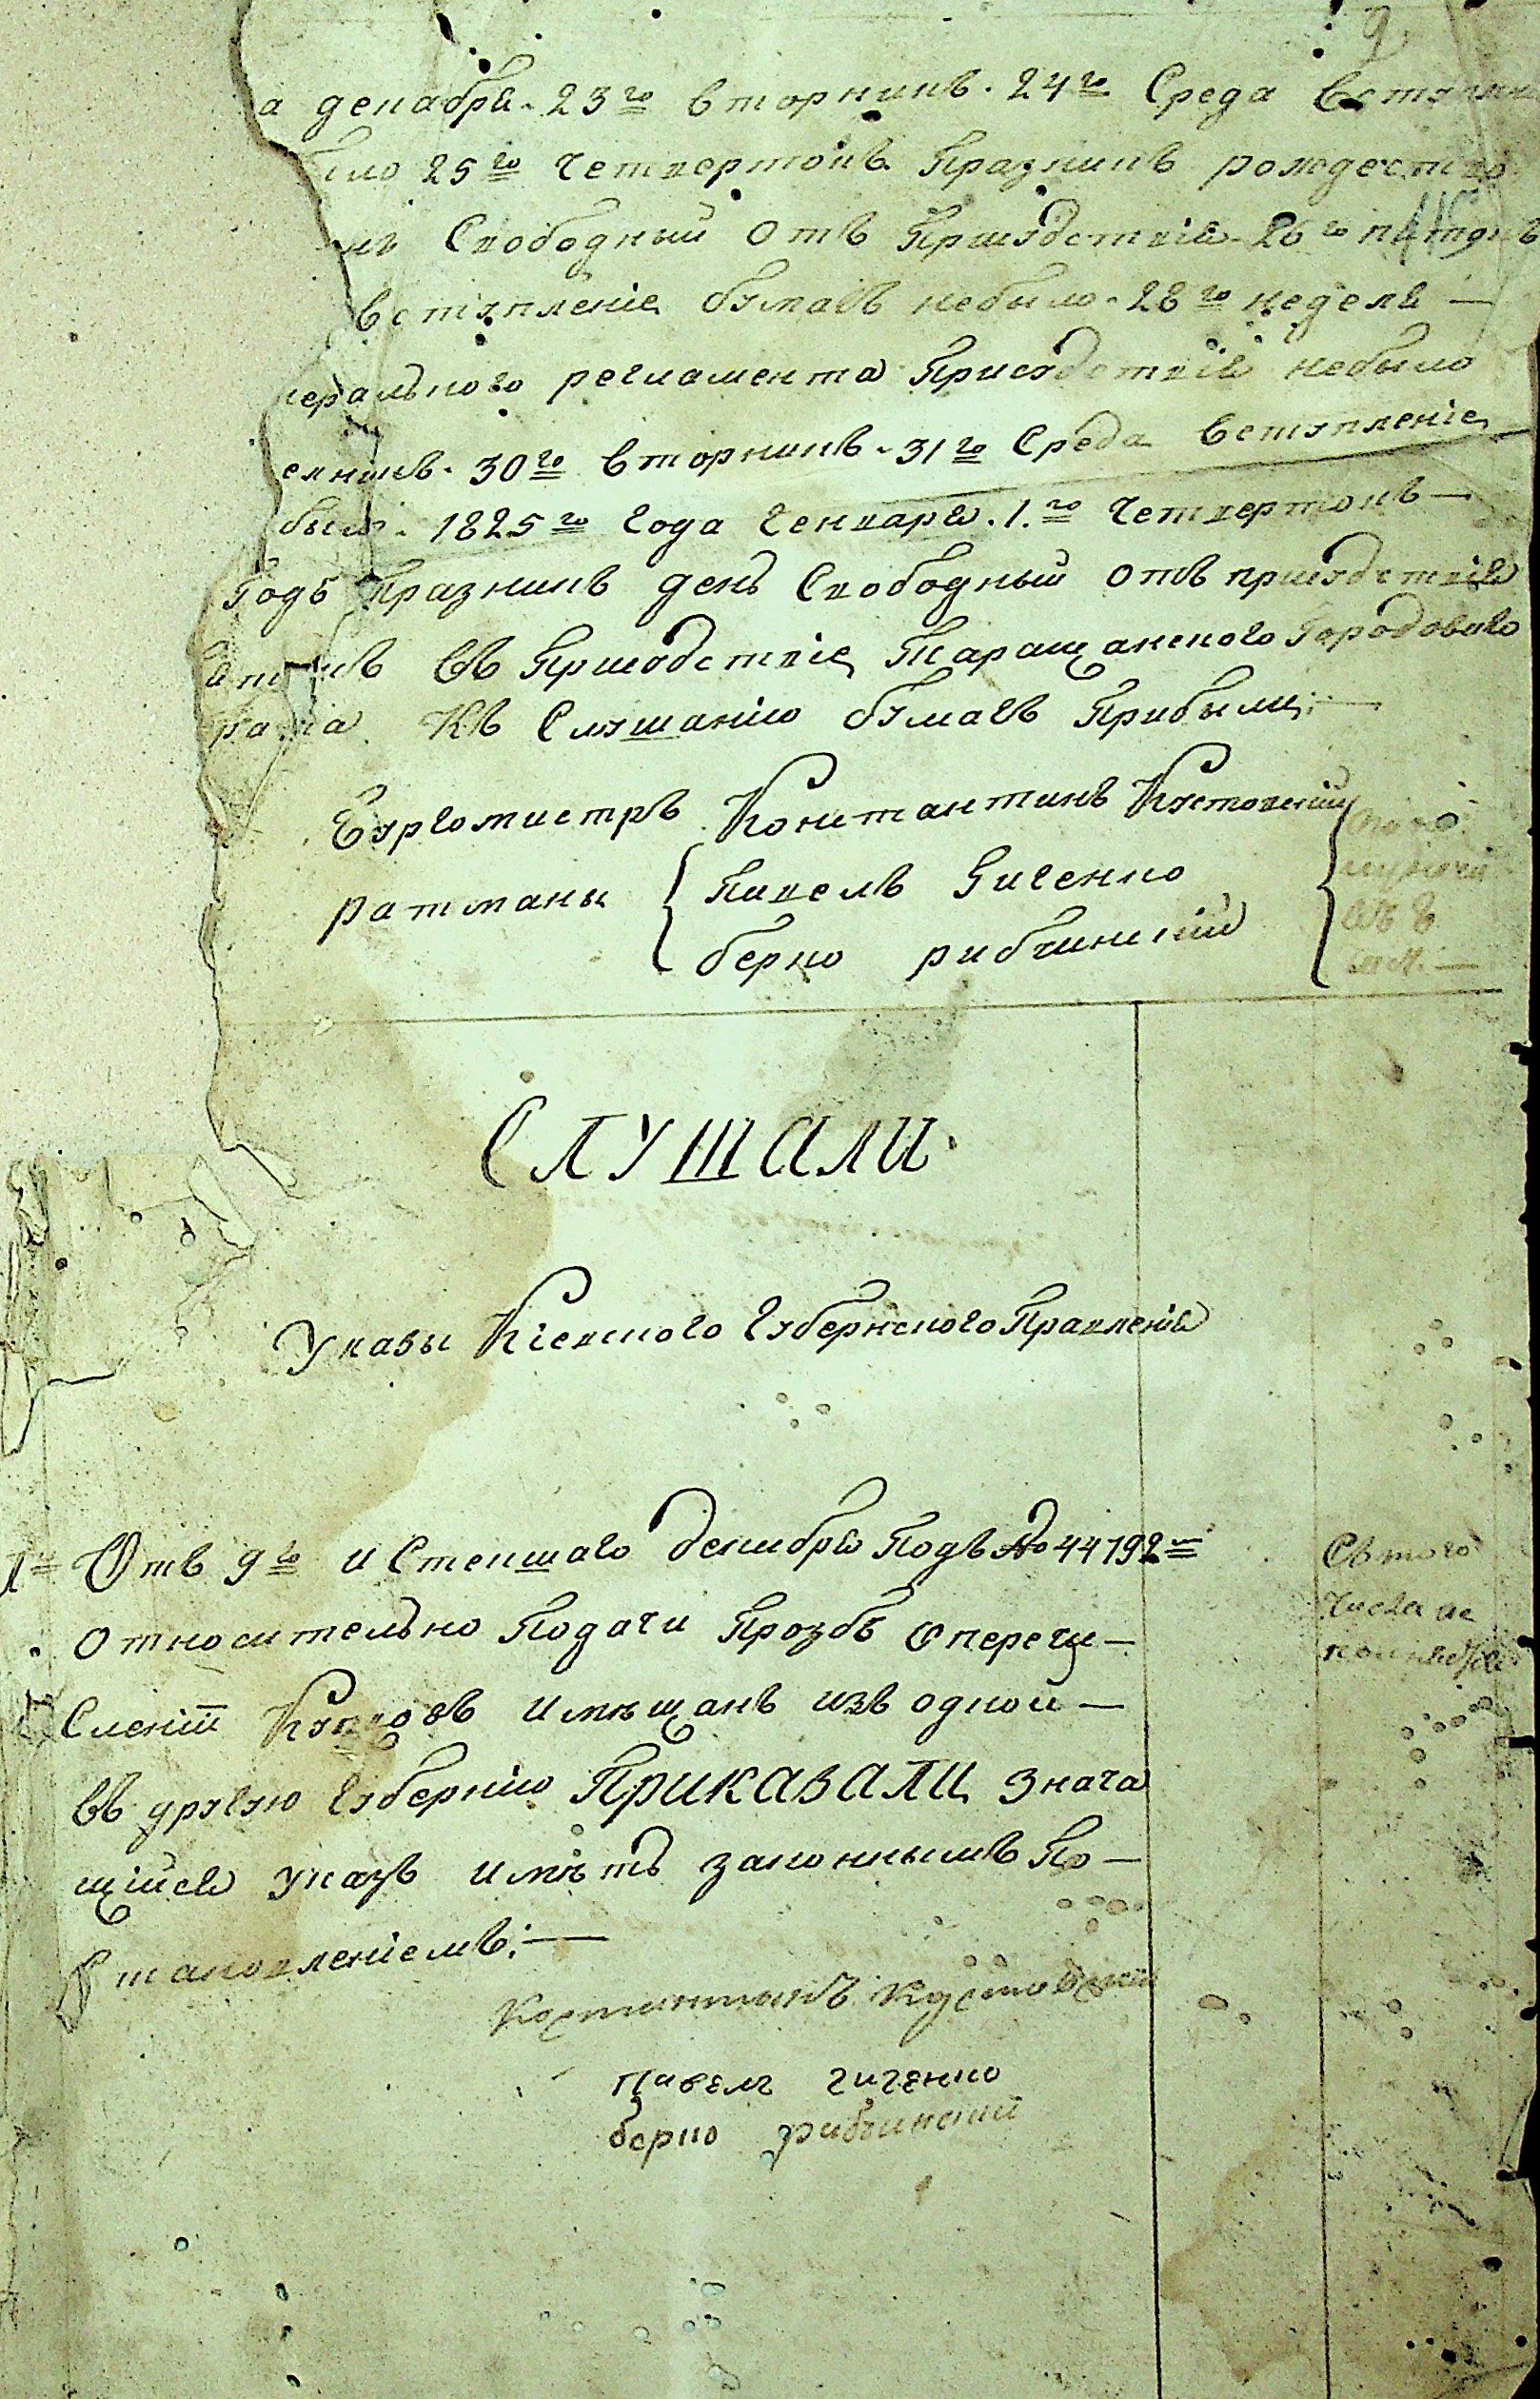 а декабря. 23го вторникъ. 24го Среда Вступле
было 25го Четвертокъ Празникъ рождество
нь Свободный Отъ Присудствія 26го пятокъ
Вступленіе бумагъ небыло. 28го неделя —
нерального регламента Присудствія небыло
елникъ. 30го вторникъ. 31го Среда Вступленіе
было. 1825го Года Генваря. 1.го Четвертокъ —
Годъ Празникъ день Свободный отъ присудствія
въ Присудствіе Таращанского Городового
къ Слушанію бумагъ Прибыли: —
Бургомистръ Константинъ Кустовский
ратманы { Павелъ Гиченко
берко рибчинский
СЛУШАЛИ
Указы Кіевского Губернского Правленія
1е Отъ 9го истекшаго декабря Подъ № 44192м
относительно Подачи Прозбъ о перечи —
сленіи Купцовъ имѣщанъ изъ одной —
въ другую Губернію ПРИКАЗАЛИ Знача
щийся указъ имѣть законнымъ По —
становленіемъ: —
Костантинъ Кустовский
Павелъ гиченко
берко рибчинский
Съ того
Числа не